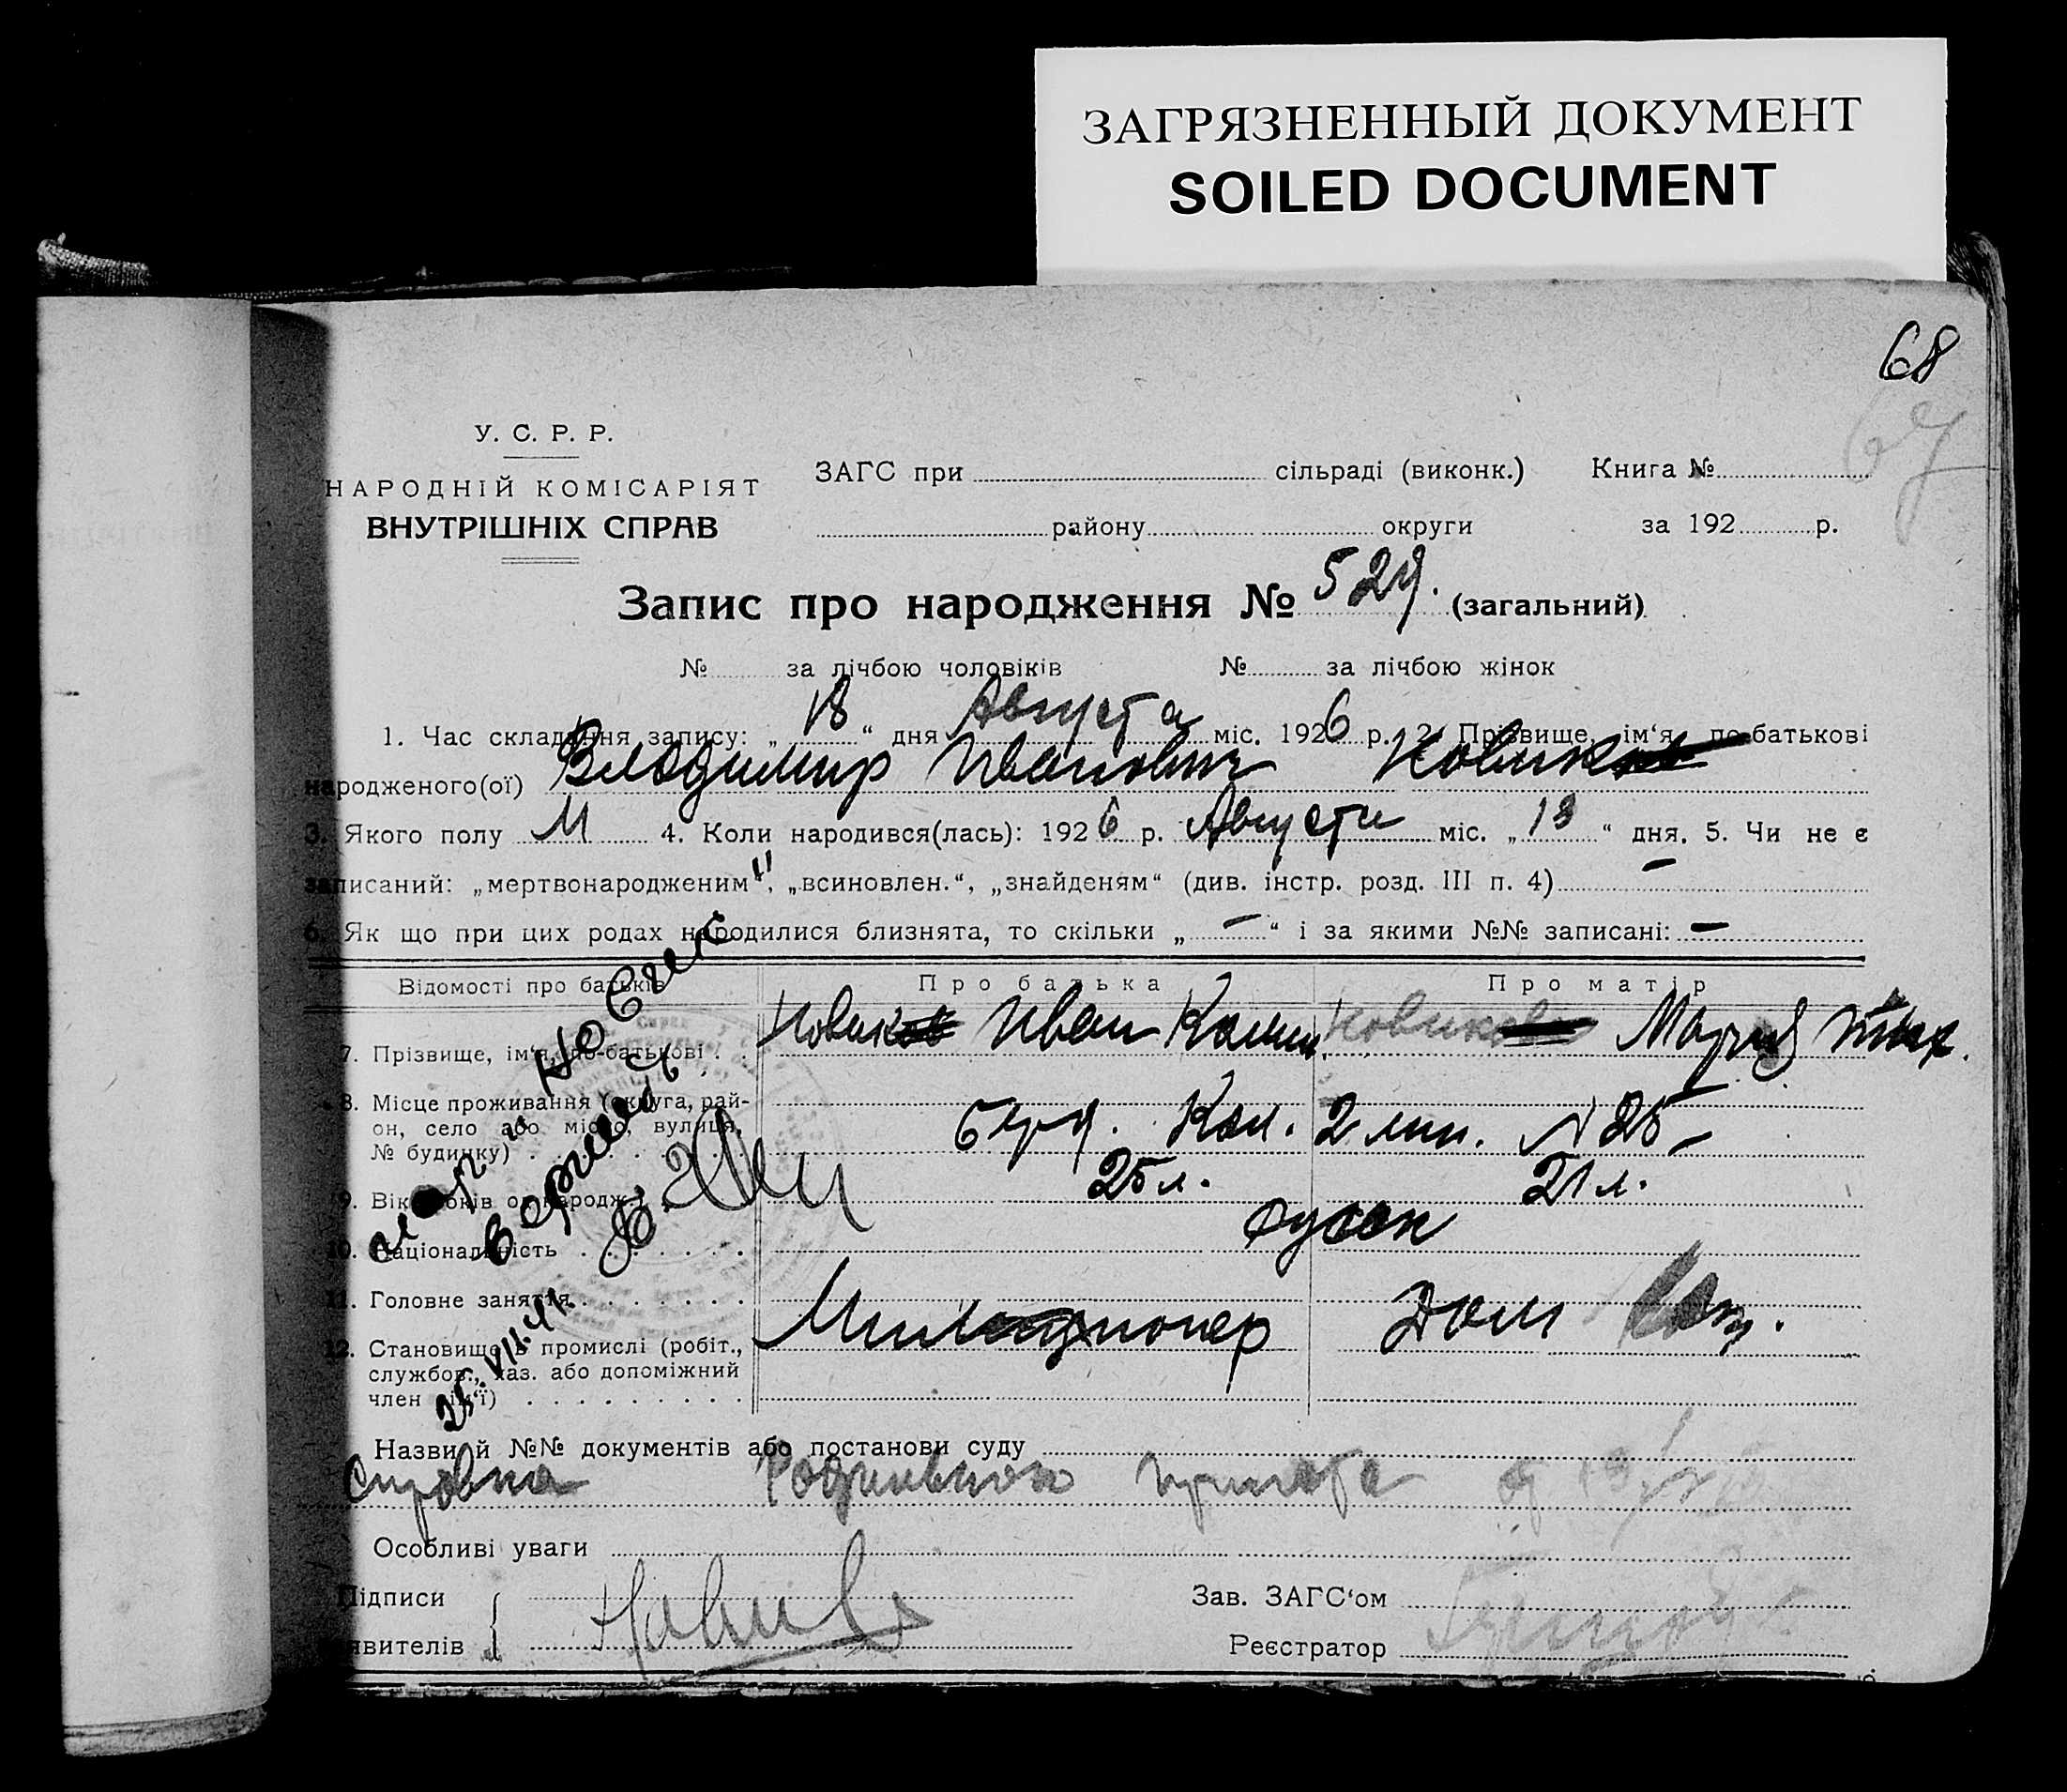 ЗАГРЯЗНЕННЫЙ ДОКУМЕНТ
SOILED DOCUMENT
68
67
У. С. Р. Р.
НАРОДНІЙ КОМІСАРІЯТ
ВНУТРІШНІХ СПРАВ
ЗАГС при сільраді (виконк.) Книга №
району округи за 192 р.
Запис про народження № 529. (загальний)
№ за лічбою чоловіків № за лічбою жінок
1. Час складання запису: „18“ дня Августа міс. 1926 р. 2. Прізвище, ім‘я, по-батькові
народженого(ої) Владимир Иванович Новик
3. Якого полу М 4. Коли народився(лась): 1926 р. Августа міс. „13“ дня. 5. Чи не є
записаний: „мертвонародженим“, „всиновлен.“, „знайденям“ (див. інстр. розд. III п. 4) —
6. Як що при цих родах народилися близнята, то скільки „—“ і за якими №№ записані: —
Відомості про батьків Про батька Про матір
7. Прізвище, ім‘я, по-батькові Новик Иван Мария
8. Місце проживання (округа, рай-
он, село або місто, вулиця,
№ будинку) Кол. 2 лин. N 25
9. Вік (років од народж.) 25 л. 21 л.
10. Національність
11. Головне заняття Милиционер Дом Хоз.
12. Становище в промислі (робіт.,
службов., хаз. або допоміжний
член сім‘ї)
25.VII.41
Назви й №№ документів або постанови суду
Справка Приюта
Особливі уваги
Підписи Зав. ЗАГС‘ом
явителів Реєстратор